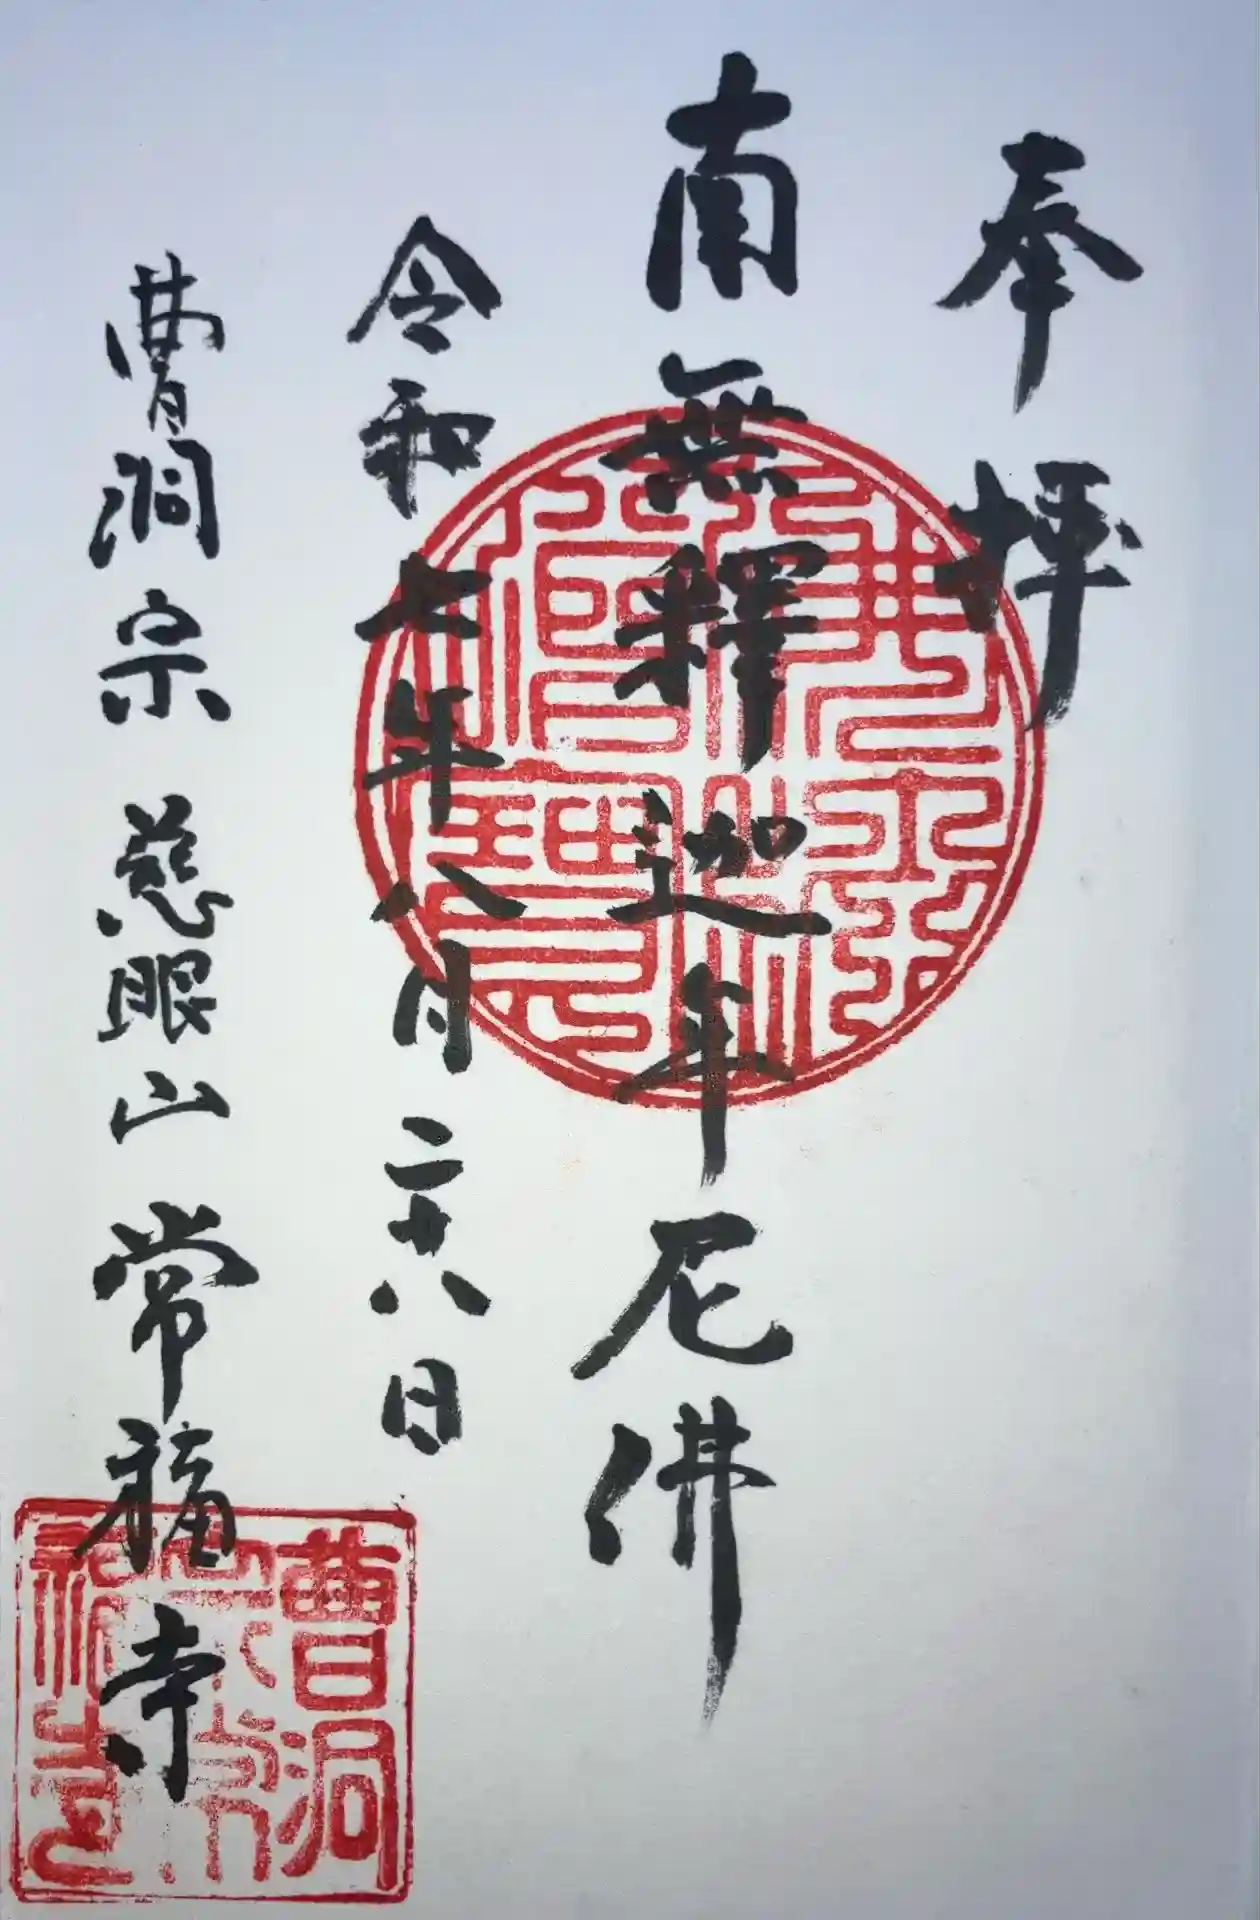 奉拝
南無釋迦牟尼佛
令和七年八月二十八日
曹洞宗 慈眼山 常福寺
佛法僧寶
曹洞宗常福寺